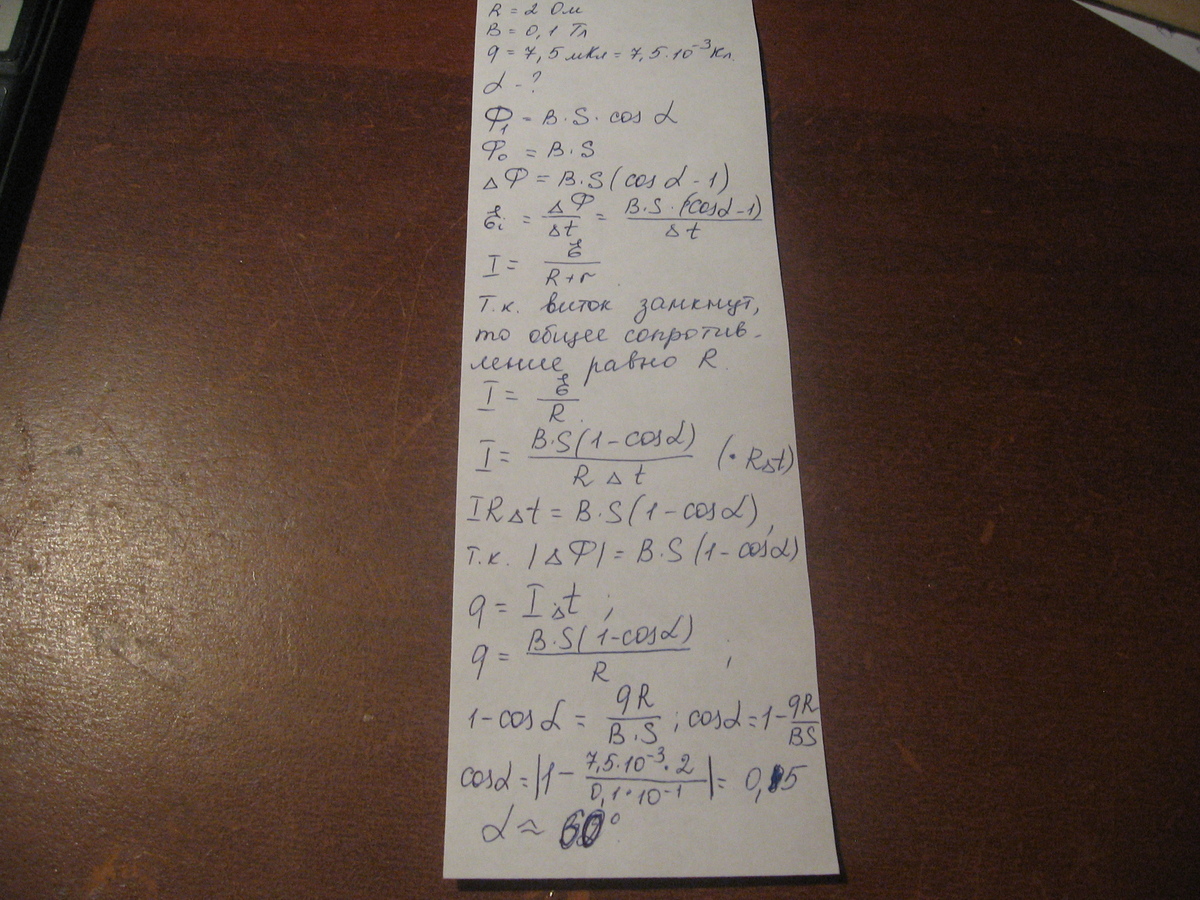 R = 2 Ом
B = 0,1 Тл
q = 7,5 мКл = 7,5·10⁻³ Кл.
α - ?
Φ₁ = B·S·cos α
Φ₀ = B·S
ΔΦ = B·S(cos α - 1)
ℰᵢ = ΔΦ/Δt = B·S·(cosα-1)/Δt
I = ℰ/(R+r).
Т.к. виток замкнут,
то общее сопротив-
ление равно R.
I = ℰ/R.
I = B·S(1-cosα)/(RΔt) (·RΔt)
IRΔt = B·S(1-cosα),
т.к. |ΔΦ| = B·S(1-cosα)
q = IΔt ;
q = B·S(1-cosα)/R ;
1-cosα = qR/(B·S) ; cosα = 1-qR/(BS)
cosα = |1 - (7,5·10⁻³·2)/(0,1·10⁻¹)| = 0,5
α ≈ 60°